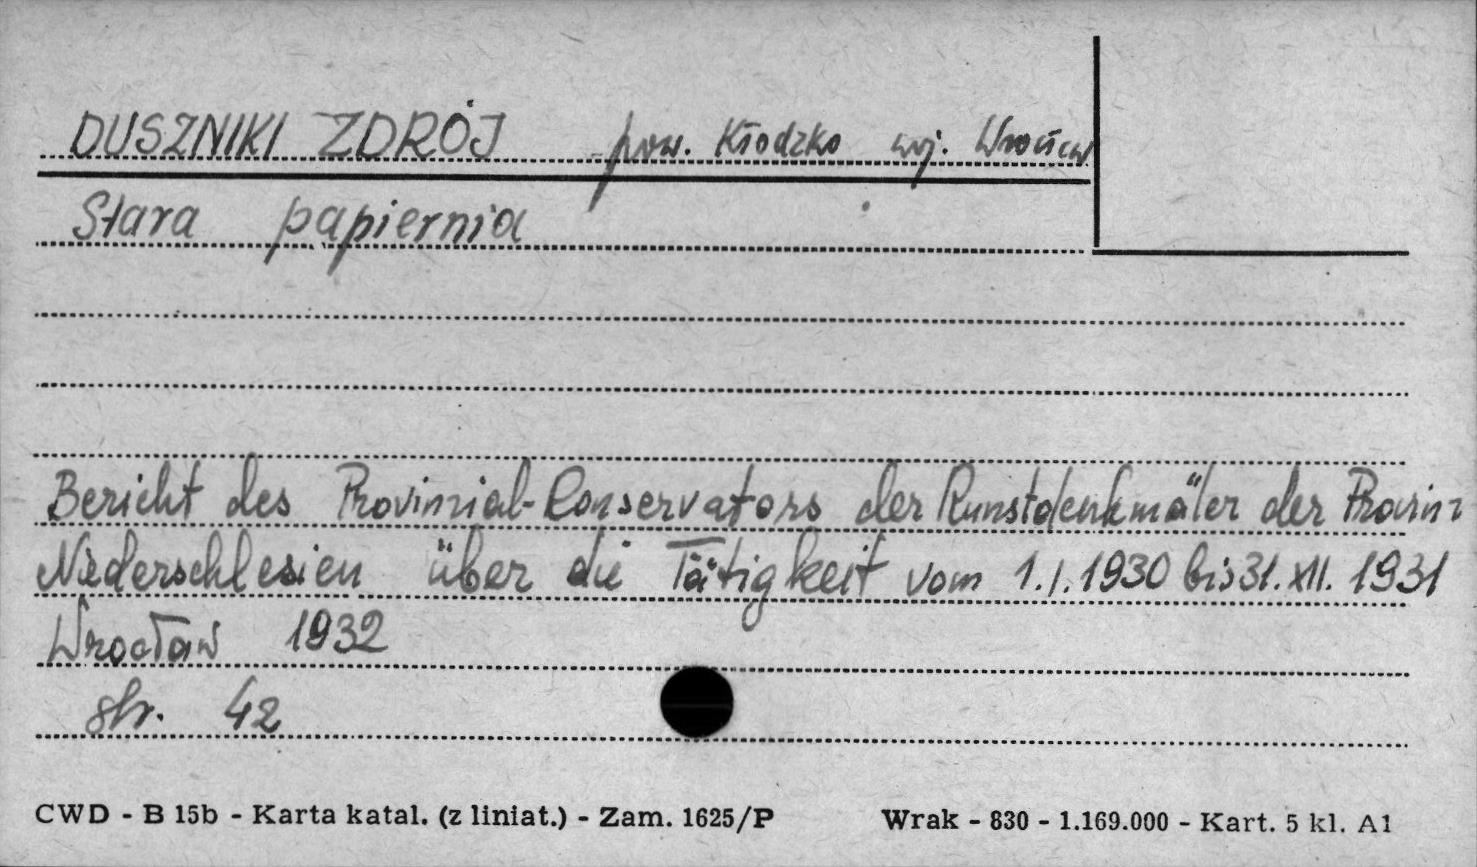 DUSZNIKI ZDRÓJ pow. Kłodzko woj. Wrocław
Stara papiernia
Bericht des Provinzial-Konservators der Kunstdenkmäler der Provinz
Niederschlesien über die Tätigkeit vom 1.I.1930 bis 31.XII.1931
Wrocław 1932
str. 42
CWD - B 15b - Karta katal. (z liniat.) - Zam. 1625/P Wrak - 830 - 1.169.000 - Kart. 5 kl. A1